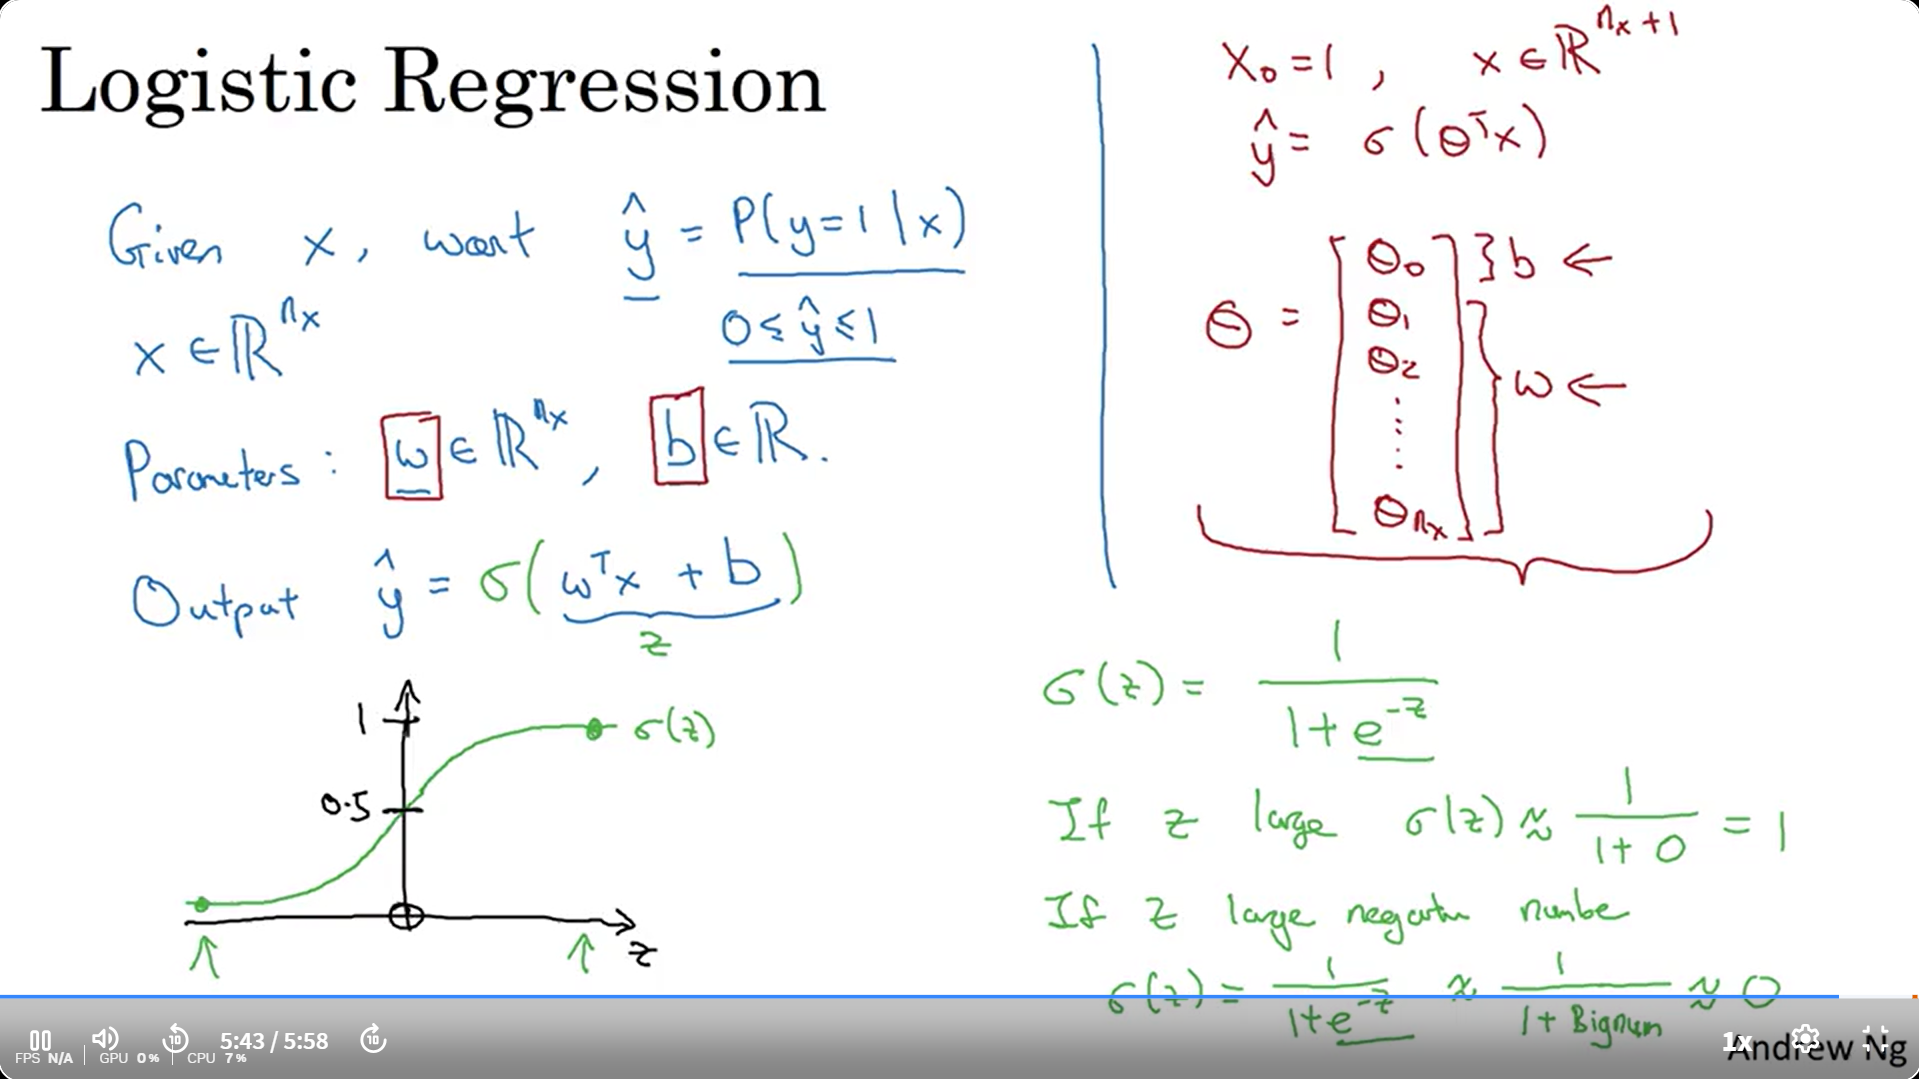 Logistic Regression
Given x, want ŷ = P(y=1|x)
x ∈ ℝ^nx
0 ≤ ŷ ≤ 1
Parameters: w ∈ ℝ^nx, b ∈ ℝ.
Output ŷ = σ(wᵀx + b)
z
1
σ(z)
0.5
z
x₀ = 1, x ∈ ℝ^nx+1
ŷ = σ(θᵀx)
θ = [θ₀ θ₁ θ₂ ⋮ θnx]
} b ←
} w ←
σ(z) = 1 / (1 + e^-z)
If z large σ(z) ≈ 1 / (1 + 0) = 1
If z large negative number
σ(z) = 1 / (1 + e^-z) ≈ 1 / (1 + Bignum) ≈ 0
10 5:43 / 5:58 10
1x
FPS N/A | GPU 0% | CPU 7%
Andrew Ng